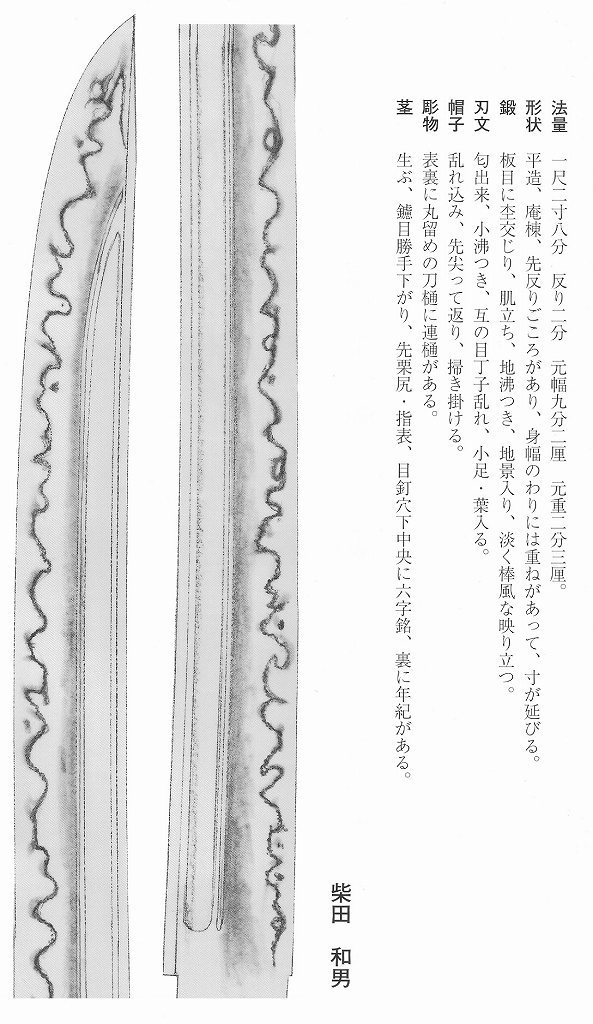 法量　一尺二寸八分　反り二分　元幅九分二厘　元重二分三厘。
形状　平造、庵棟、先反りごころがあり、身幅のわりには重ねがあって、寸が延びる。
鍛　板目に杢交じり、肌立ち、地沸つき、地景入り、淡く棒風な映り立つ。
刃文　匂出来、小沸つき、互の目丁子乱れ、小足・葉入る。
帽子　乱れ込み、先尖って返り、掃き掛ける。
彫物　表裏に丸留めの刀樋に連樋がある。
茎　生ぶ、鑢目勝手下がり、先栗尻・指表、目釘穴下中央に六字銘、裏に年紀がある。
柴田　和男